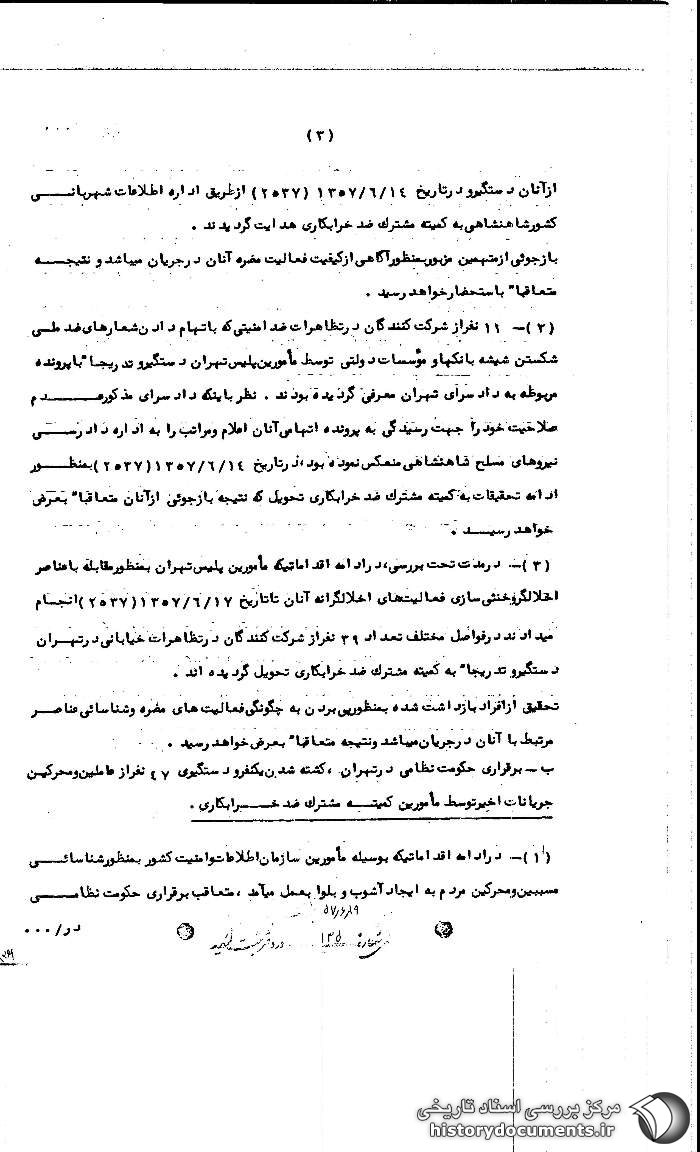 (۳)
ازآنان دستگیرو درتاریخ ۱۳۵۷/۶/۱۴ (۲۵۳۷) ازطریق اداره اطلاعات شهربانــــی
کشورشاهنشاهی به کمیته مشترك ضد خرابکاری هدایت گردیدند .
بازجوئی ازمتهمین مزبوربمنظورآگاهی ازکیفیت فعالیت مضره آنان درجریان میباشد و نتیجـــه
متعاقبا" باستحضارخواهد رسید .
(۲)ـ ۱۱ نفراز شرکت کنندگان درتظاهرات ضدامنیتی که باتهام دادن شعارهای ضدملـی
شکستن شیشه بانکهاو مؤسسات دولتی توسط مأمورین پلیس تهران دستگیرو تدریجا" باپرونده
مربوطه به دادسرای تهران معرفی گردیده بودند . نظر باینکه دادسرای مذکورعـــــدم
صلاحیت خودرا جهت رسیدگی به پرونده اتهامی آنان اعلام ومراتب را به اداره دادرســـی
نیروهای مسلح شاهنشاهی منعکس نموده بود، درتاریخ ۱۳۵۷/۶/۱۴(۲۵۳۷)بمنظـــور
ادامه تحقیقات به کمیته مشترك ضد خرابکاری تحویل که نتیجه بازجوئی ازآنان متعاقبا" بعرض
خواهد رسیـــد .
(۳)ـ درمدت تحت بررسی، درادامه اقداماتیکه مأمورین پلیس تهران بمنظورمقابله باعناصر
اخلالگروخنثی سازی فعالیتهای اخلالگرانه آنان تاتاریخ ۱۳۵۷/۶/۱۷(۲۵۳۷)انجـــام
میدادند درفواصل مختلف تعداد ۳۹ نفراز شرکت کنندگان درتظاهرات خیابانی درتهـــران
دستگیرو تدریجا" به کمیته مشترك ضد خرابکاری تحویل گردیده اند .
تحقیق ازافراد بازداشت شده بمنظورپی بردن به چگونگی فعالیت های مضره وشناسائی عناصـر
مرتبط با آنان درجریان میباشد ونتیجه متعاقبا" بعرض خواهد رسید .
ب ـ برقراری حکومت نظامی درتهران ، کشته شدن یکنفرو دستگیری ۴۷ نفراز عاملین ومحرکین
جریانات اخیرتوسط مأمورین کمیتـــه مشترك ضد خــــرابکاری .
(۱)ـ درادامه اقداماتیکه بوسیله مأمورین سازمان اطلاعات وامنیت کشور بمنظورشناسائـــی
مسببین ومحرکین مردم به ایجاد آشوب و بلوا بعمل میآمد ، متعاقب برقراری حکومت نظامـــی
۵۷/۶/۱۹
شماره ۱۳۵ در دفتر ثبت
در/۰۰۰
مرکز بررسی اسناد تاریخی
historydocuments.ir